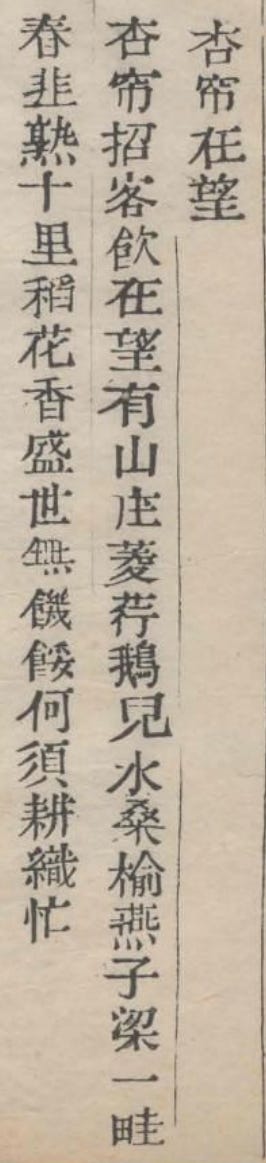 杏帘在望
杏帘招客飲在望有山庄菱荇鵝兒水桑榆燕子梁一畦
春韭熟十里稻花香盛世無饑餒何須耕織忙